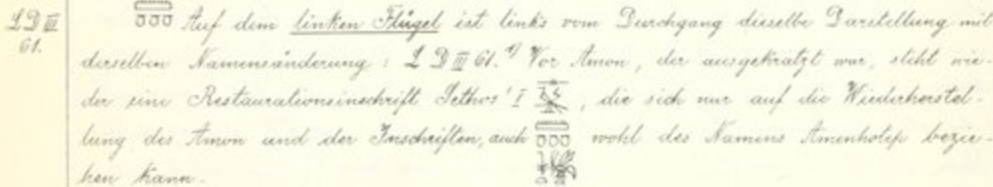 L D III 61. Auf dem linken Flügel ist links vom Durchgang dieselbe Darstellung mit
derselben Namensänderung: L D III 61. Vor Amon, der ausgekratzt war, steht wie-
der eine Restaurationsinschrift Sethos' I , die sich nur auf die Wiederherstel-
lung des Amon und der Inschriften, auch wohl des Namens Amenhotep bezie-
hen kann.